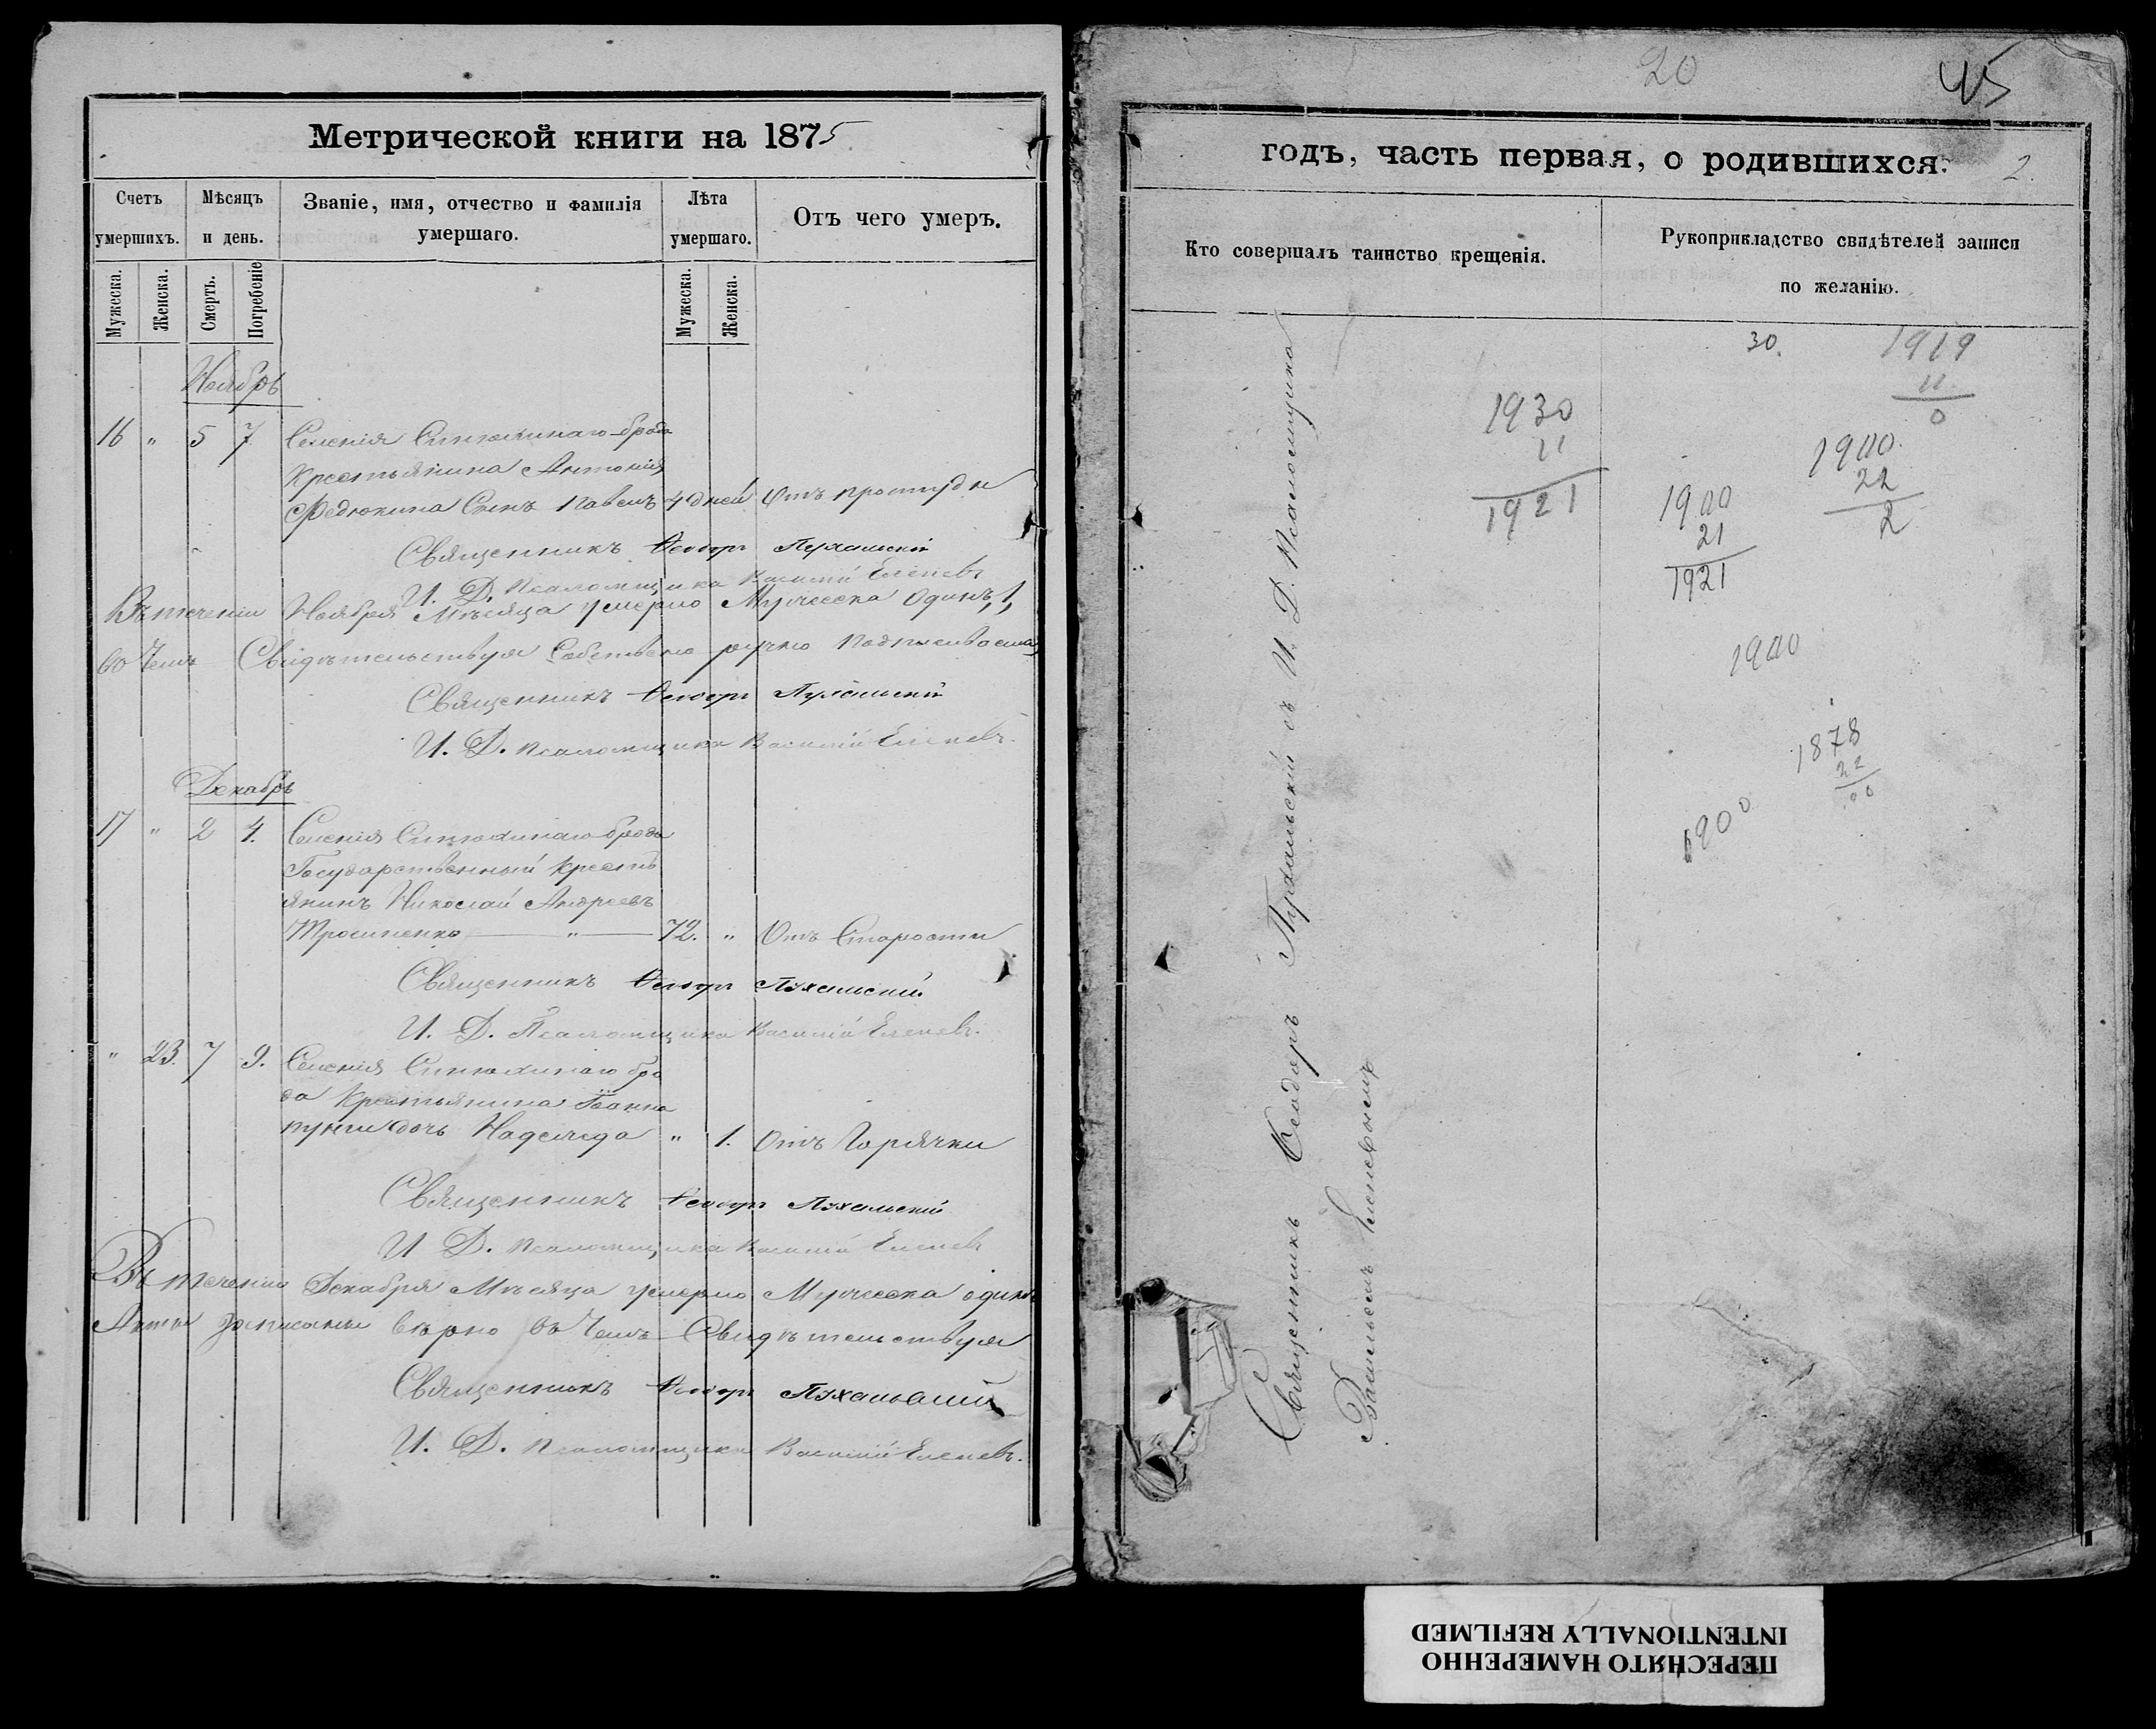 Метрической книги на 1875
Счетъ умершихъ.
Мѣсяцъ и день.
Званіе, имя, отчество и фамилія умершаго.
Лѣта умершаго.
Отъ чего умеръ.
Мужеска.
Женска.
Смерть.
Погребеніе
Мужеска.
Женска.
Ноябрь
16 " 5 7 Селенія Синюхинаго-брода
Крестьянина Антонія
Федюкина Сынъ Павелъ 4 дней Отъ простуды
Священникъ Ѳеодоръ Пухальскій
И. Д. Псаломщика Василій
Въ теченіи Ноября Мѣсяца умерло Мужеска Одинъ, 1,
во Чемъ Свидѣтельствуя Собственно ручно подписываемся
Священникъ Ѳеодоръ Пухальскій
И. Д. Псаломщика Василій
Декабрь
17 " 2 4. Селенія Синюхинаго-брода
Государственный Кресть
янинъ Николай Андреевъ
" 72. " Отъ Старости
Священникъ Ѳеодоръ Пухальскій
И. Д. Псаломщика Василій
" 23. 7 9. Селенія Синюхинаго бро
да Крестьянина Іоанна
дочь Надежда " 1. Отъ Горячки
Священникъ Ѳеодоръ Пухальскій
И Д. Псаломщика Василій
Въ теченіи Декабря Мѣсяца умерло Мужеска одинъ
Акты записаны вѣрно въ Чемъ Свидѣтельствуя
Священникъ Ѳеодоръ Пухальскій
И. Д. Псаломщика Василій
20
45
годъ, часть первая, о родившихся.
2.
Кто совершалъ таинство крещенія.
Рукоприкладство свидѣтелей записи
по желанію.
Священникъ Ѳеодоръ Пухальскій съ И. Д. Псаломщика
Василіемъ
1930
11
1921
30.
1919
11
0
1900
22
2
1900
21
1921
1900
1878
22
00
1900
ПЕРЕСНЯТО НАМЕРЕННО
INTENTIONALLY REFILMED